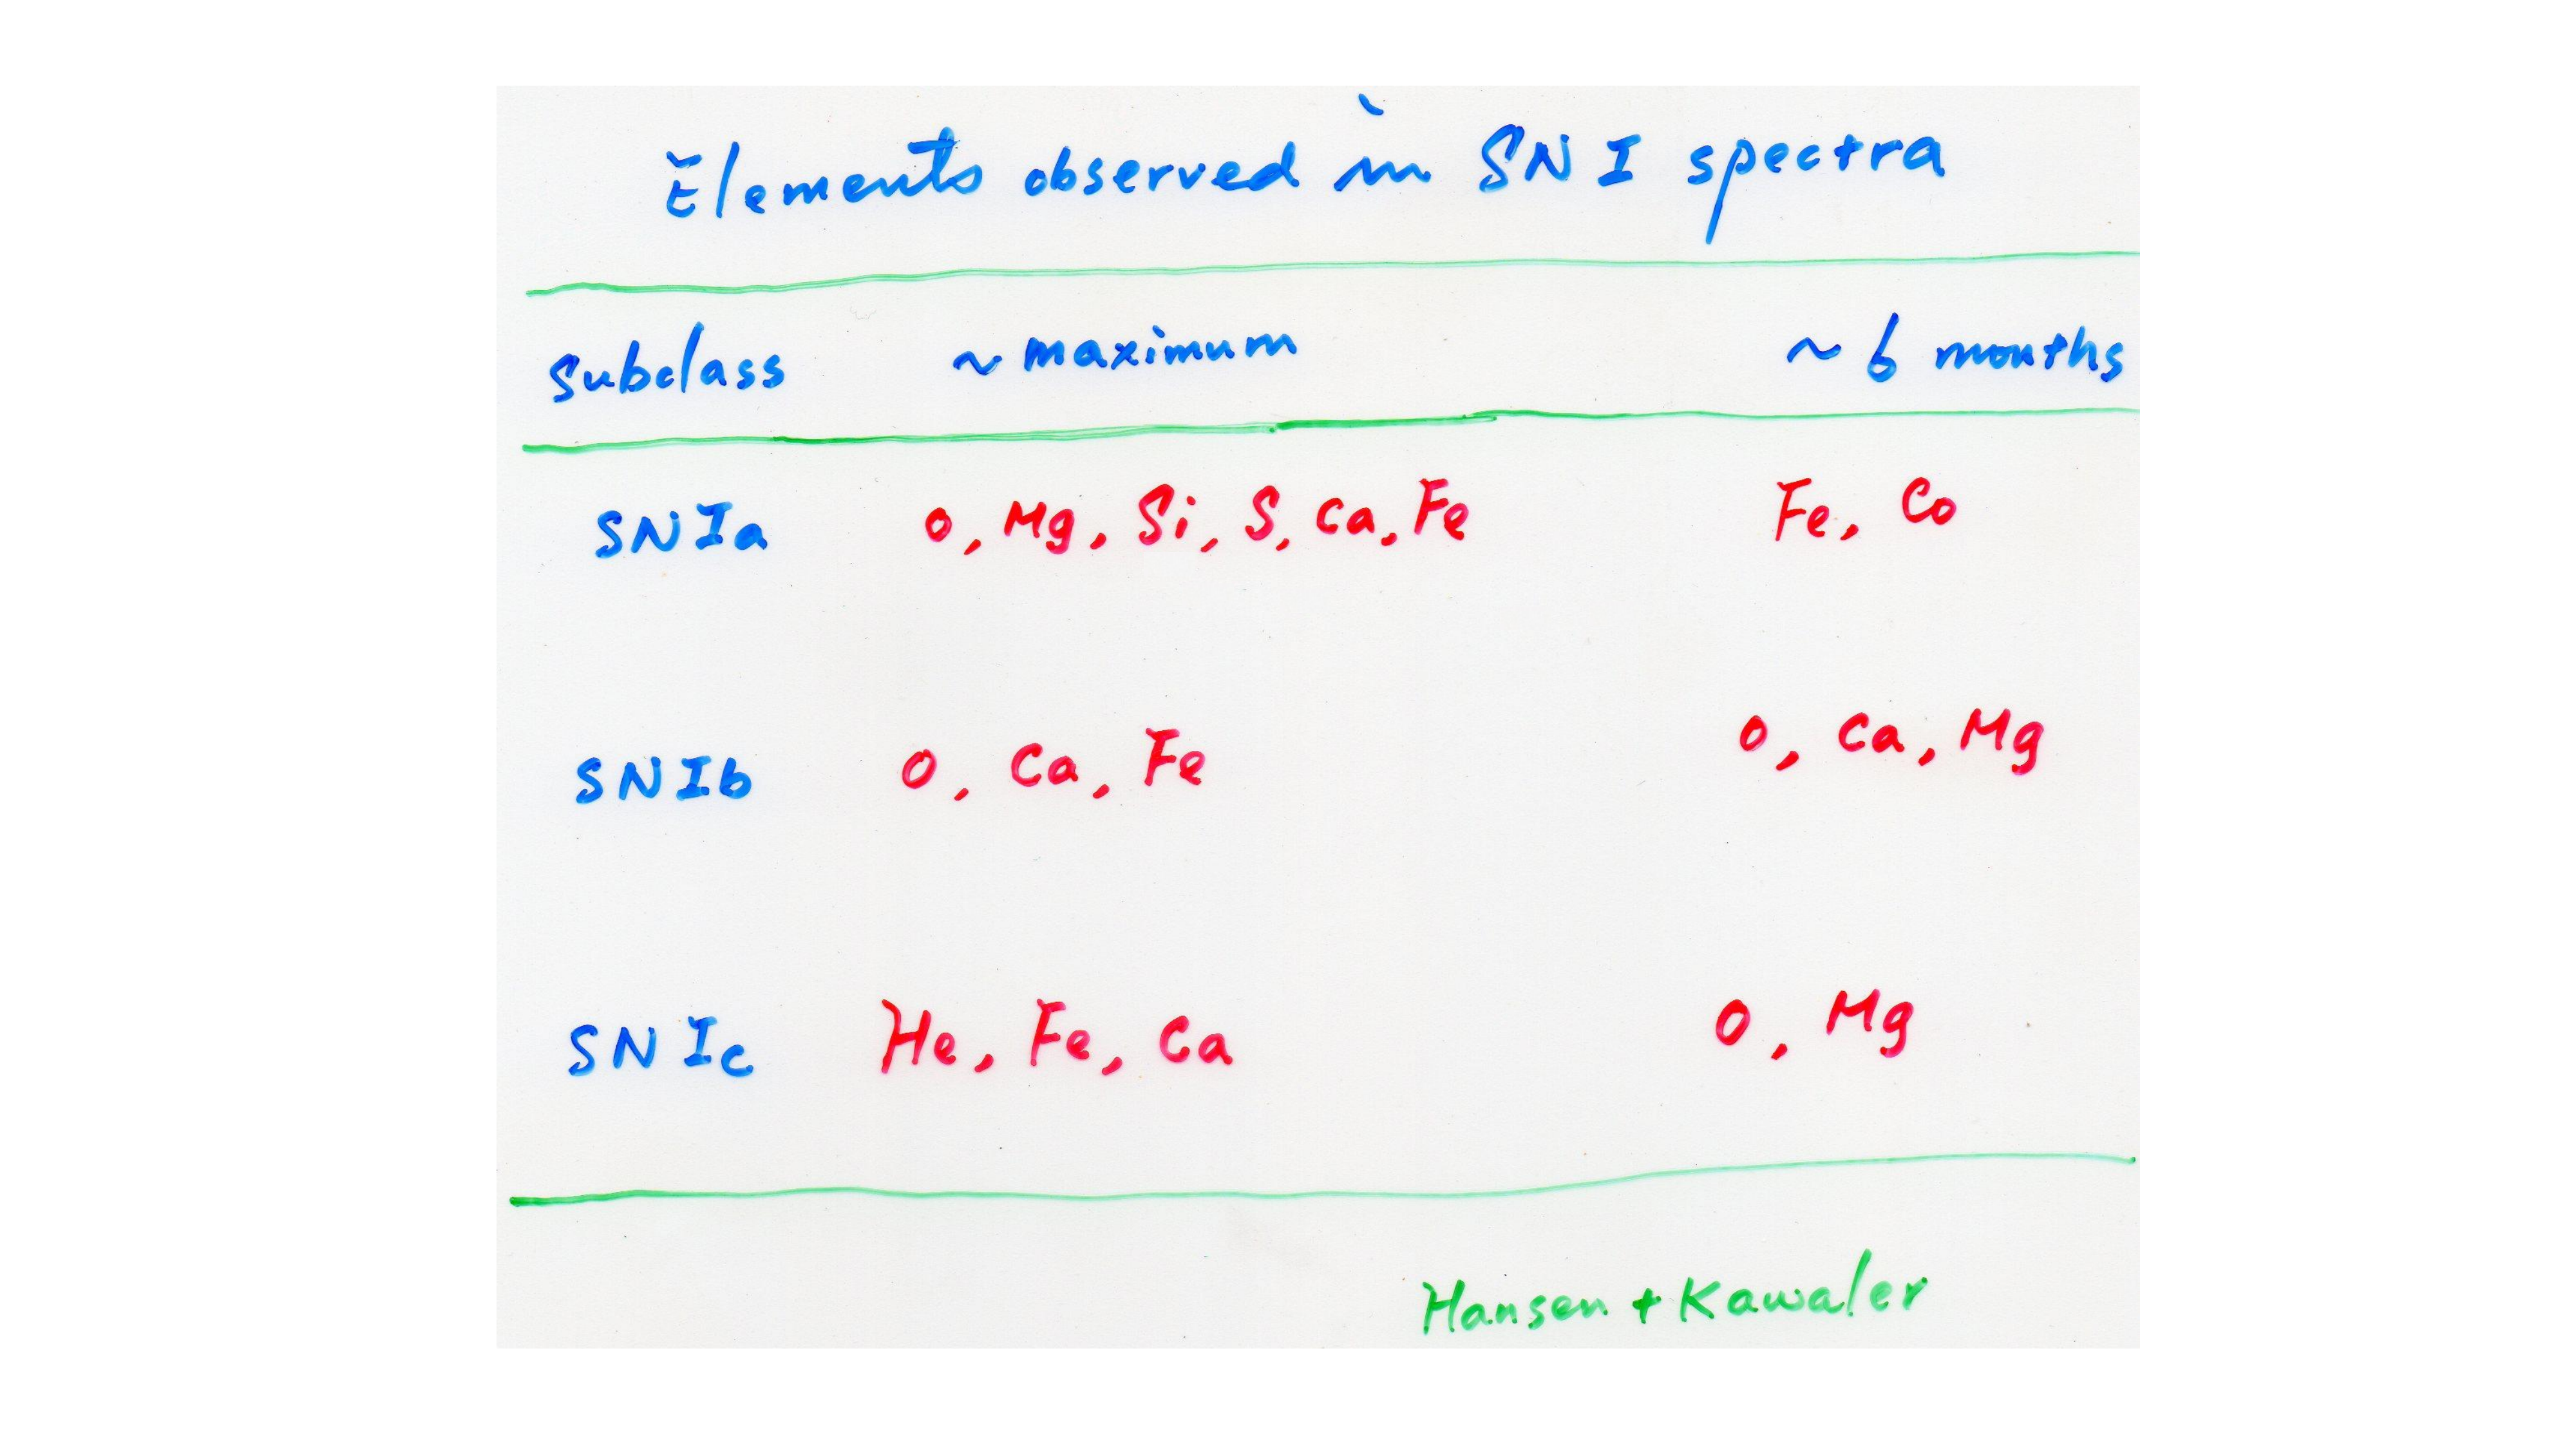 Elements observed in SN I spectra
Subclass ~ maximum ~ 6 months
SNIa O, Mg, Si, S, Ca, Fe Fe, Co
SNIb O, Ca, Fe O, Ca, Mg
SNIc He, Fe, Ca O, Mg
Hansen + Kawaler